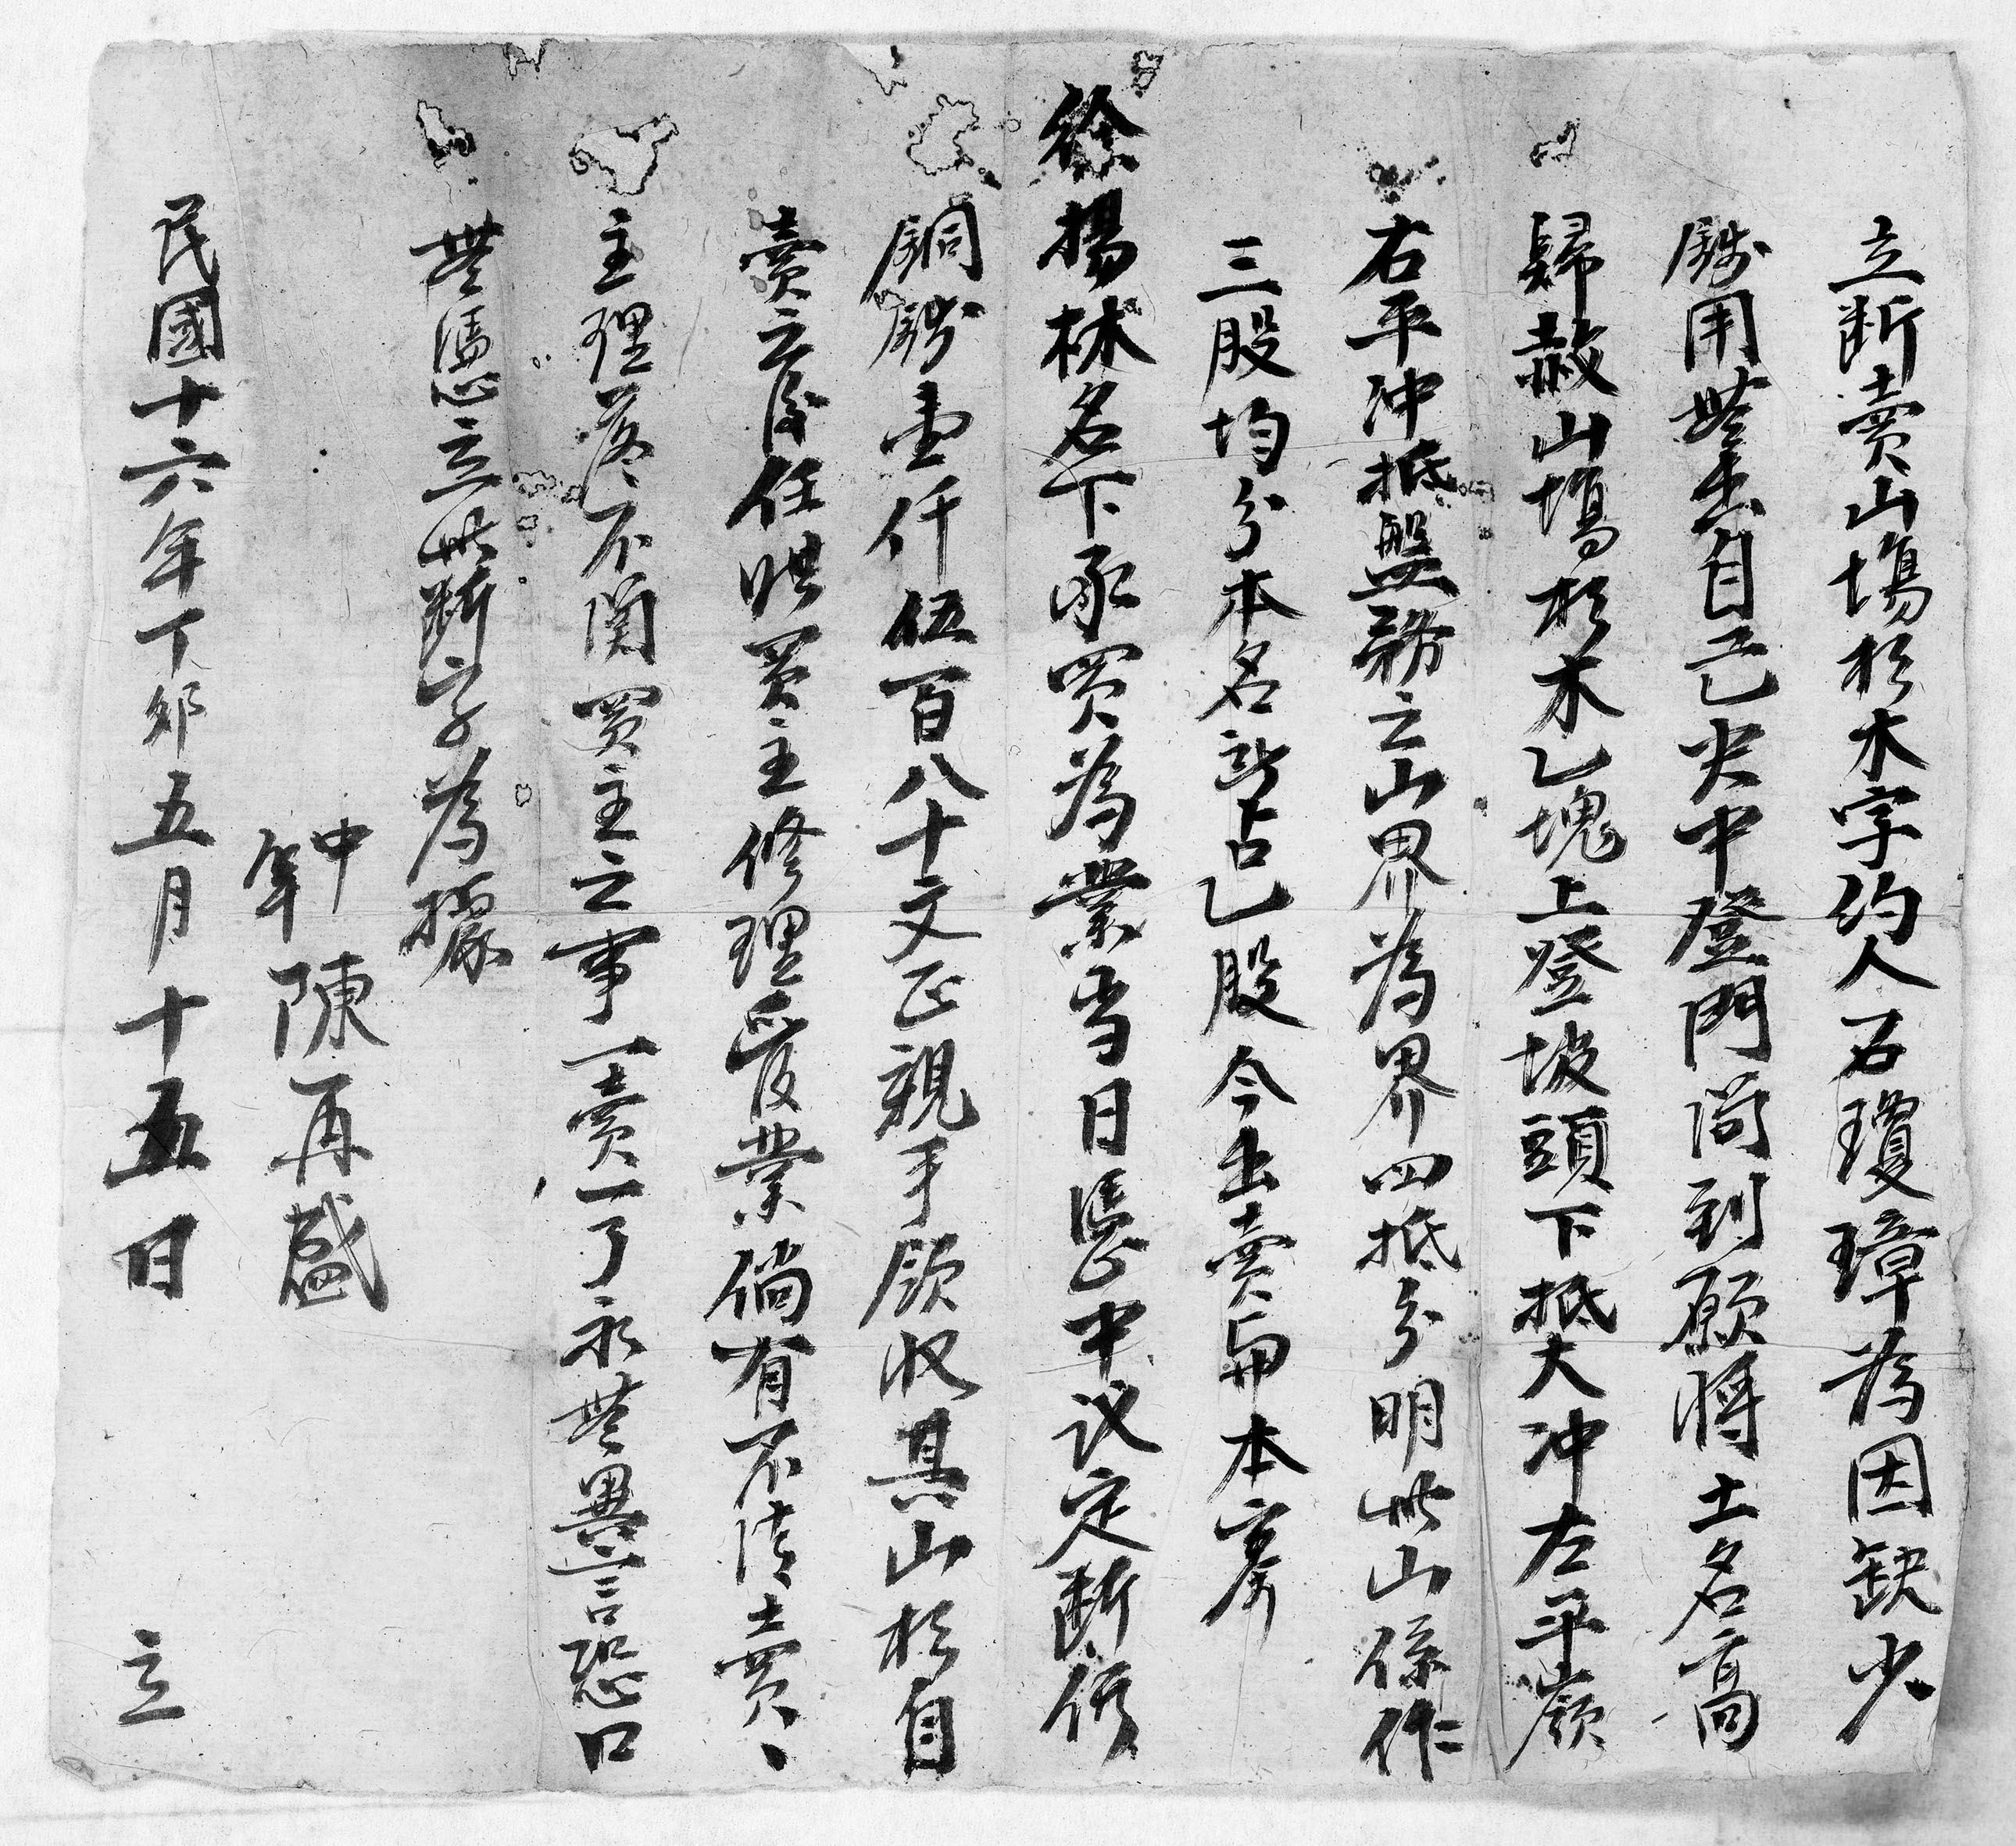 立断賣山塲杉木字約人石瓊璋為因缺少
錢用無出自己央中登門问到愿將土名高
歸赦山塲杉木乙塊上登坡頭下抵大冲左平嶺
右平冲抵盤務之山界為界四抵分明此山係作
三股均分本名所占乙股今出賣與本寨
徐揚林名下承買為業当日憑中议定断價
銅錢壹仟伍百八十文正親手領收其山杉自
賣之後任凴買主修理管業倘有不清賣、
主理落不関買主之事一賣一了永無異言恐口
無憑立此断字為據
中
筆 陳再盛
民國十六年丁卯五月十五日 立